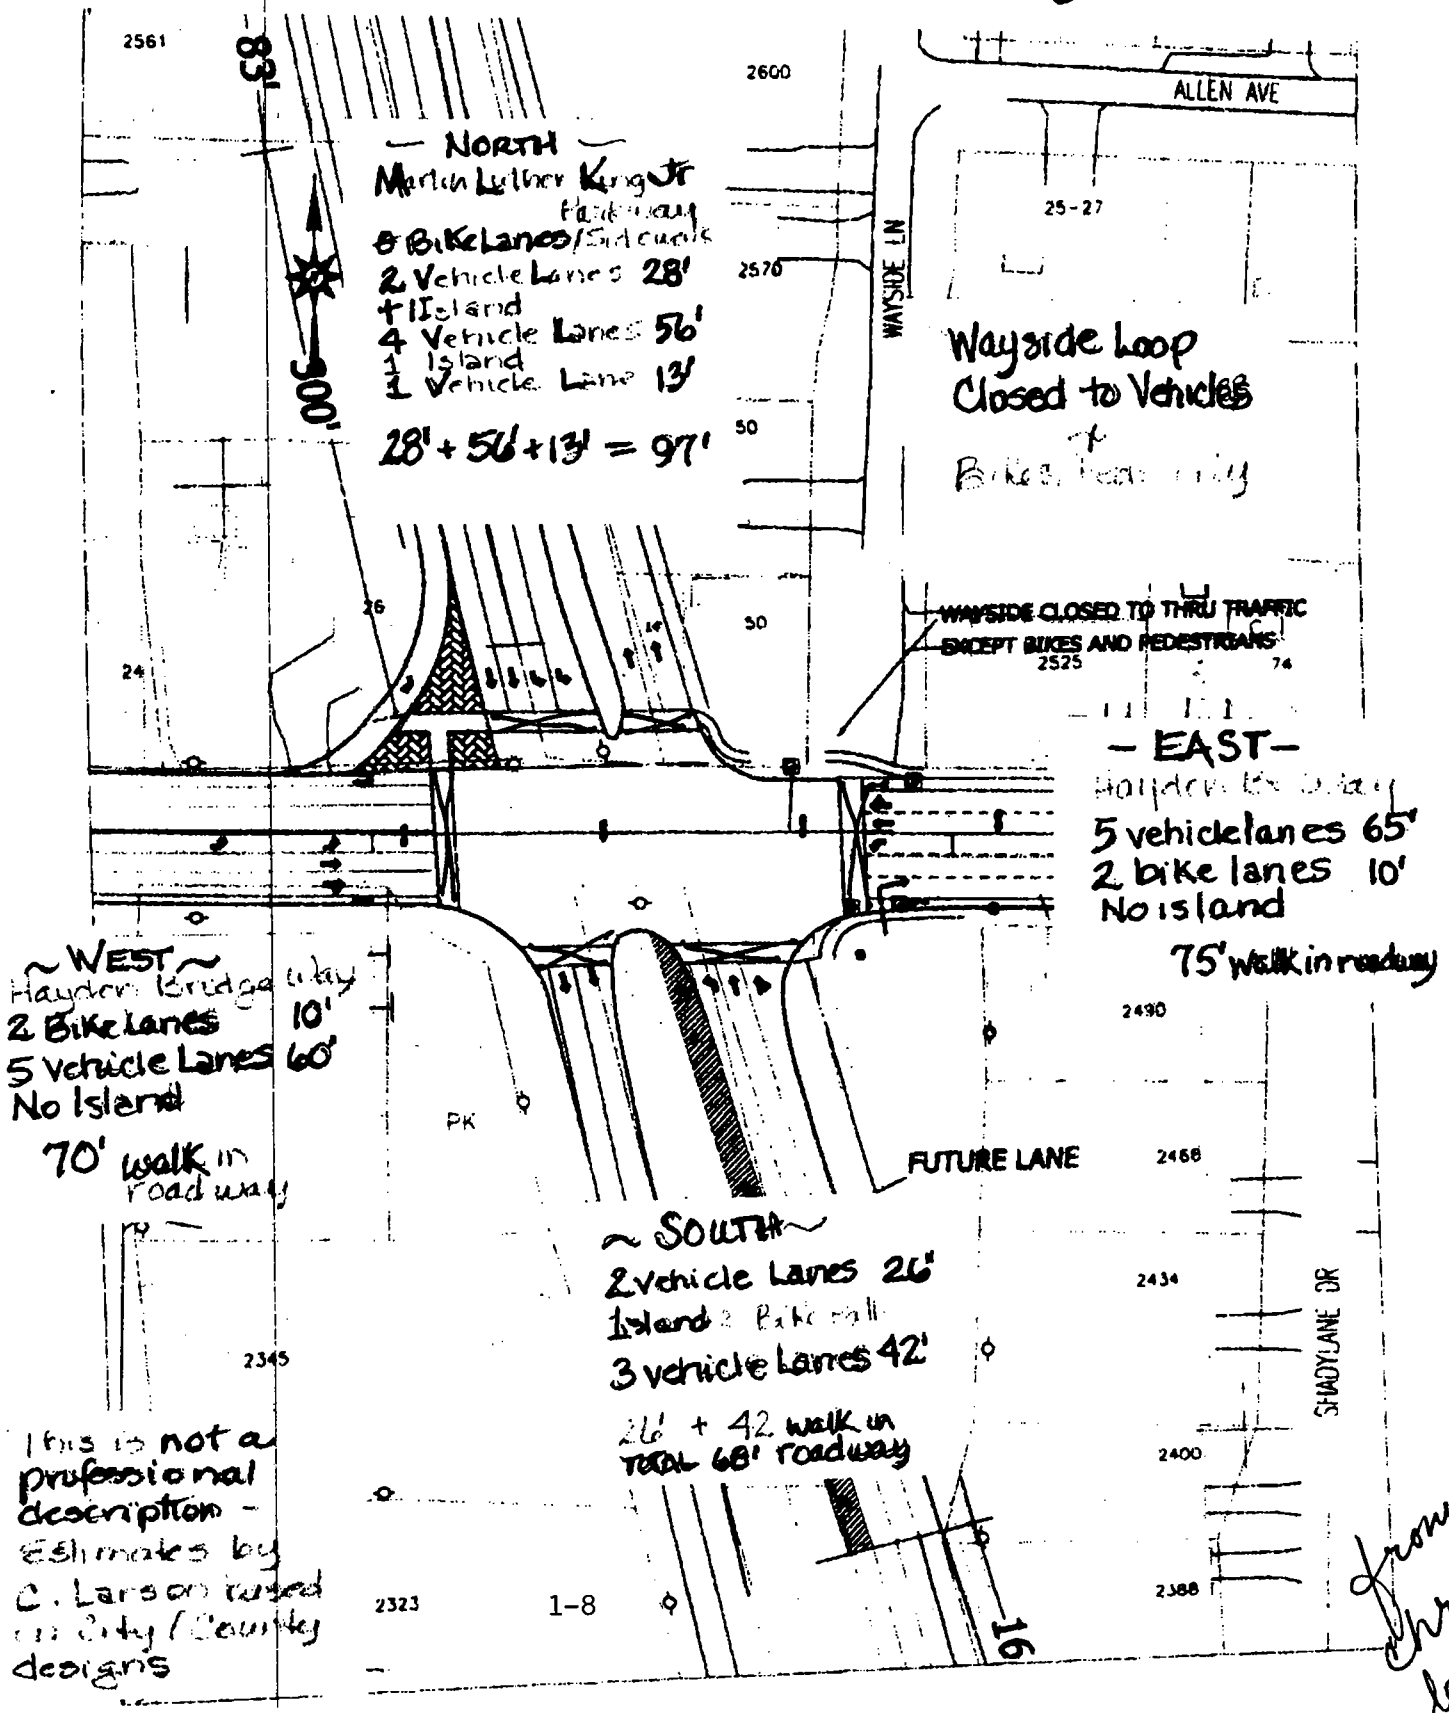 2561
83'
2600
ALLEN AVE
— NORTH —
Martin Luther King Jr
Parkway
0 Bike Lanes/Sidewalk
2 Vehicle Lanes 28'
+ 1 Island
4 Vehicle Lanes 56'
1 Island
1 Vehicle Lane 13'
28' + 56' + 13' = 97'
300'
25-27
2570
WAYSIDE LN
Wayside Loop
Closed to Vehicles
Bikes
50
26
50
14'
24
WAYSIDE CLOSED TO THRU TRAFFIC
EXCEPT BIKES AND PEDESTRIANS
2525
74
— EAST —
Hayden Br Way
5 vehicle lanes 65'
2 bike lanes 10'
No island
75' walk in roadway
~ WEST ~
Hayden Bridge Way
2 Bike Lanes 10'
5 Vehicle Lanes 60'
No Island
70' walk in
roadway
2490
PK
FUTURE LANE
2468
~ SOUTH ~
2 vehicle Lanes 26'
1 island
3 vehicle Lanes 42'
26' + 42 walk in
TOTAL 68' roadway
2434
SHADYLANE DR
2345
2400
This is not a
professional
description -
Estimates by
C. Larson based
on City/County
designs
2323
1-8
16
2388
From